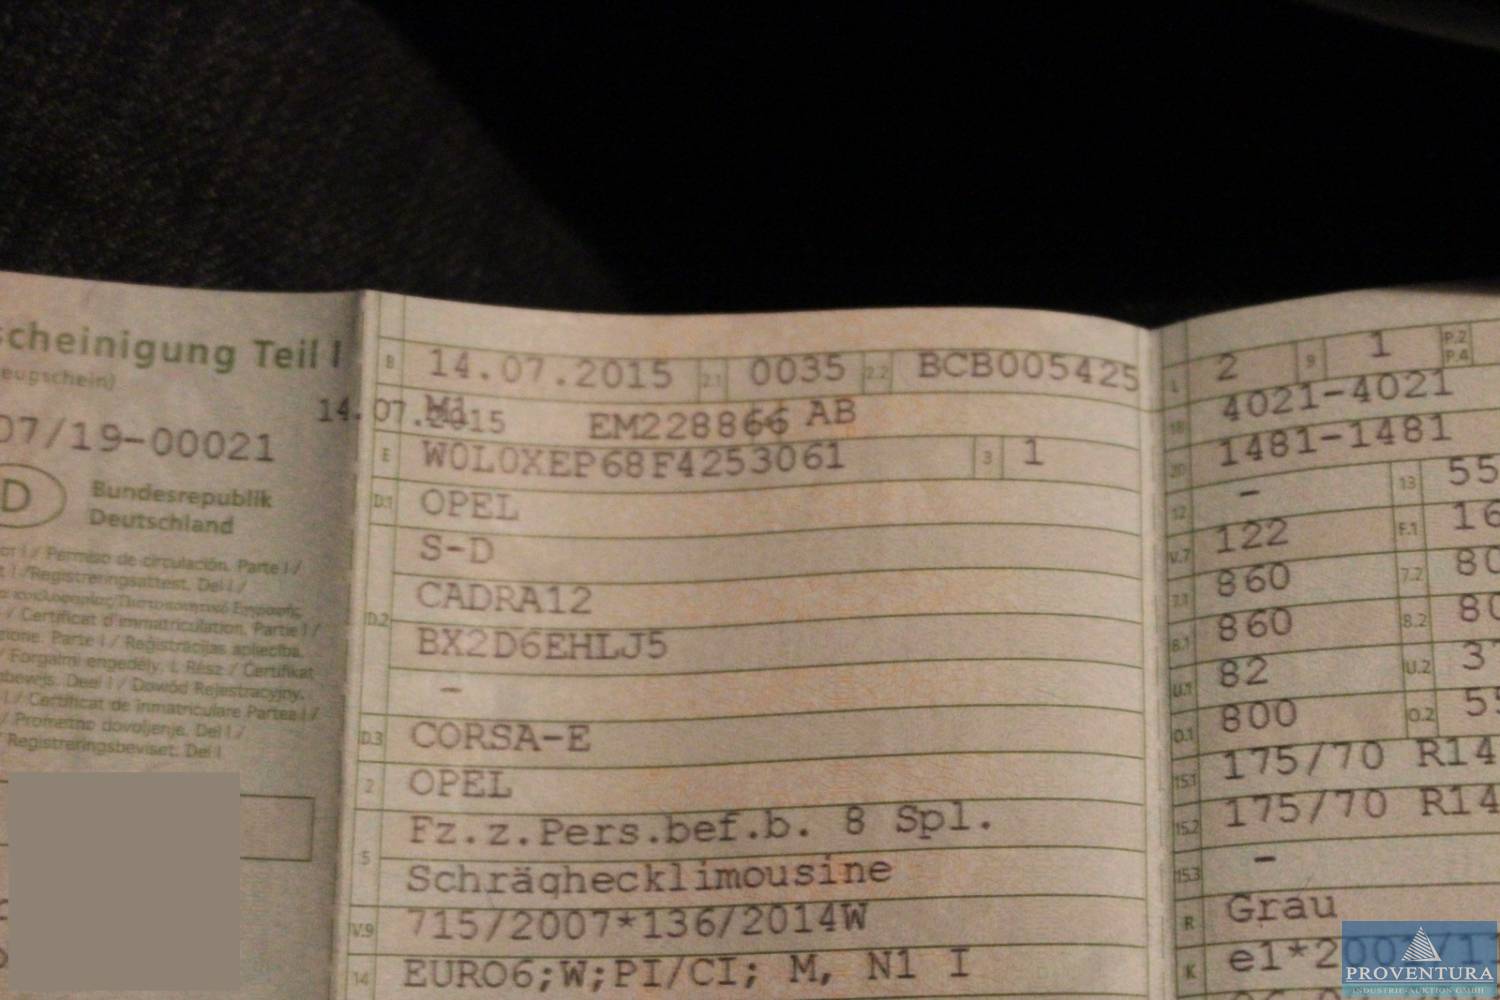 scheinigung Teil I
eugschein)
07/19-00021
D
Bundesrepublik
Deutschland
/ Permiso de circulación. Parte I /
/ Registreringsattest. Del I /
/ Certificat d'immatriculation. Partie I /
Parte I / Reģistrācijas apliecība.
/ Forgalmi engedély. I. Rész / Ċertifikat
Deel I / Dowód Rejestracyjny.
I / Certificat de înmatriculare Partea I /
/ Prometno dovoljenje. Del I /
Registreringsbeviset. Del I
B 14.07.2015 2.1 0035 2.2 BCB005425
14.07.2015 EM228866 AB
E W0L0XEP68F4253061 3 1
D.1 OPEL
S-D
D.2 CADRA12
BX2D6EHLJ5
-
D.3 CORSA-E
2 OPEL
5 Fz.z.Pers.bef.b. 8 Spl.
Schräghecklimousine
V.9 715/2007*136/2014W
14 EURO6;W;PI/CI; M, N1 I
L 2 9 1 P.2 P.4
18 4021-4021
20 1481-1481
12 - 13 55
V.7 122 F.1 16
7.1 860 7.2 80
8.1 860 8.2 80
U.1 82 U.2 37
O.1 800 O.2 55
15.1 175/70 R14
15.2 175/70 R14
15.3 -
R Grau
K e1*2007/1
PROVENTURA
INDUSTRIE-AUKTION GMBH